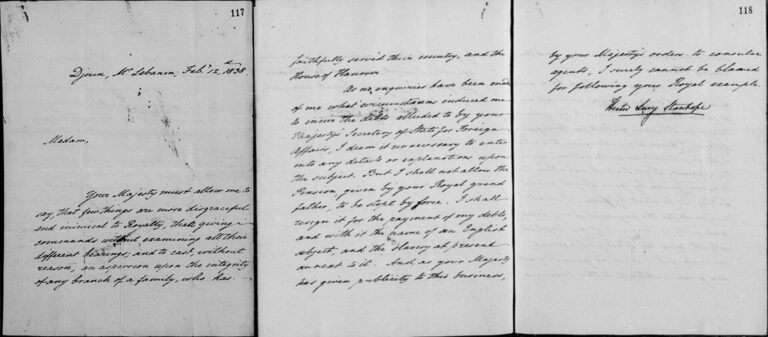 117
Djoun, Mt Lebanon, Feby 12th 1838
Madam,
Your Majesty must allow me to
say, that few things are more disgraceful
and inimical to Royalty, than giving
commands without examining all their
different bearings; and to cast, without
reason, an aspersion upon the integrity
of any branch of a family, who has
faithfully served their country, and the
House of Hanover
As no enquiries have been made
of me what circumstances induced me
to incur the debts alluded to by your
Majesty's Secretary of State for Foreign
Affairs, I deem it unnecessary to enter
into any details or explanation upon
the subject. But I shall not allow the
Pension, given by your Royal grand
father, to be stopt by force. I shall
resign it for the payment of my debts,
and with it the name of an English
subject, and the slavery at present
annext to it. And as your Majesty
has given publicity to this business,
118
by your Majesty's orders to consular
agents, I surely cannot be blamed
for following your Royal example
Hester Lucy Stanhope